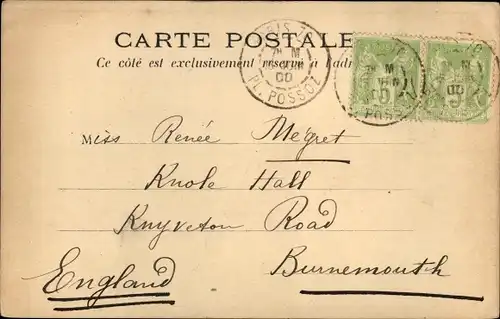 CARTE POSTALE
Ce côté est exclusivement réservé à l'adr
PL. POSSOZ
00
Miss Renée Megret
Knole Hall
Knyveton Road
Burnemouth
England